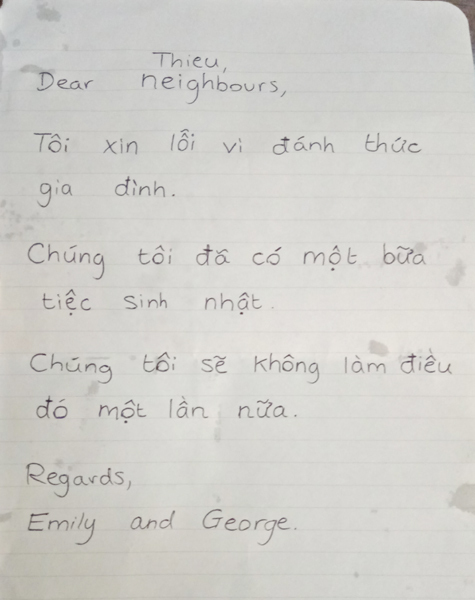 Thieu,
Dear neighbours,
Tôi xin lỗi vì đánh thức
gia đình.
Chúng tôi đã có một bữa
tiệc sinh nhật.
Chúng tôi sẽ không làm điều
đó một lần nữa.
Regards,
Emily and George.